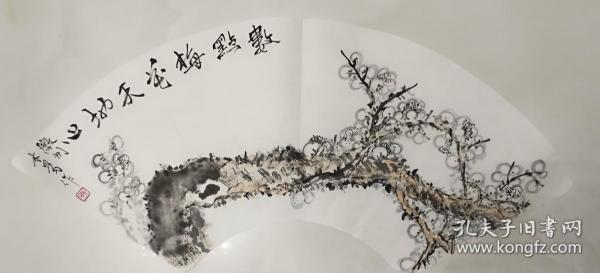 數點梅花天地心
孔夫子旧书网
www.kongfz.com